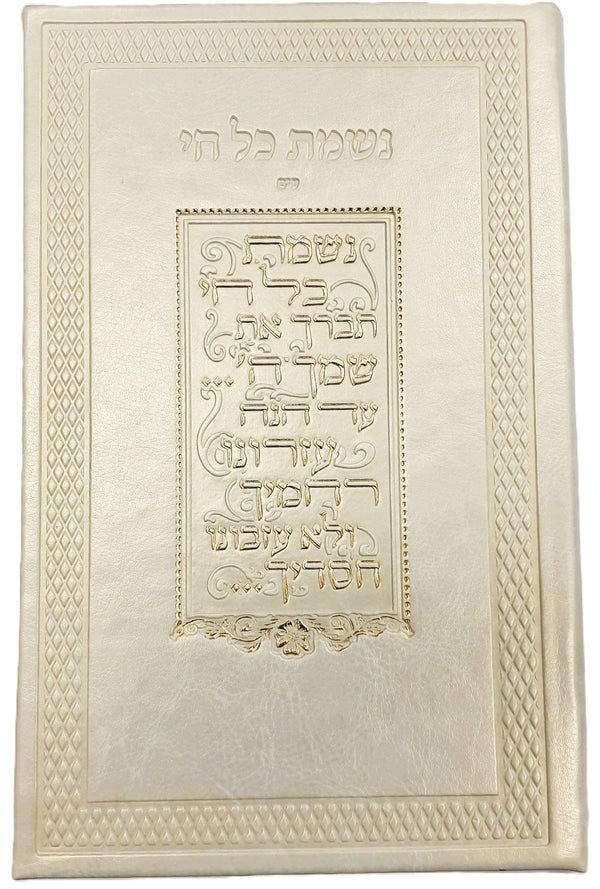 נשמת כל חי
נשמת
כל חי
תברך את
שמך ה' ...
עד הנה
עזרונו
רחמיך
ולא עזבונו
חסדיך...